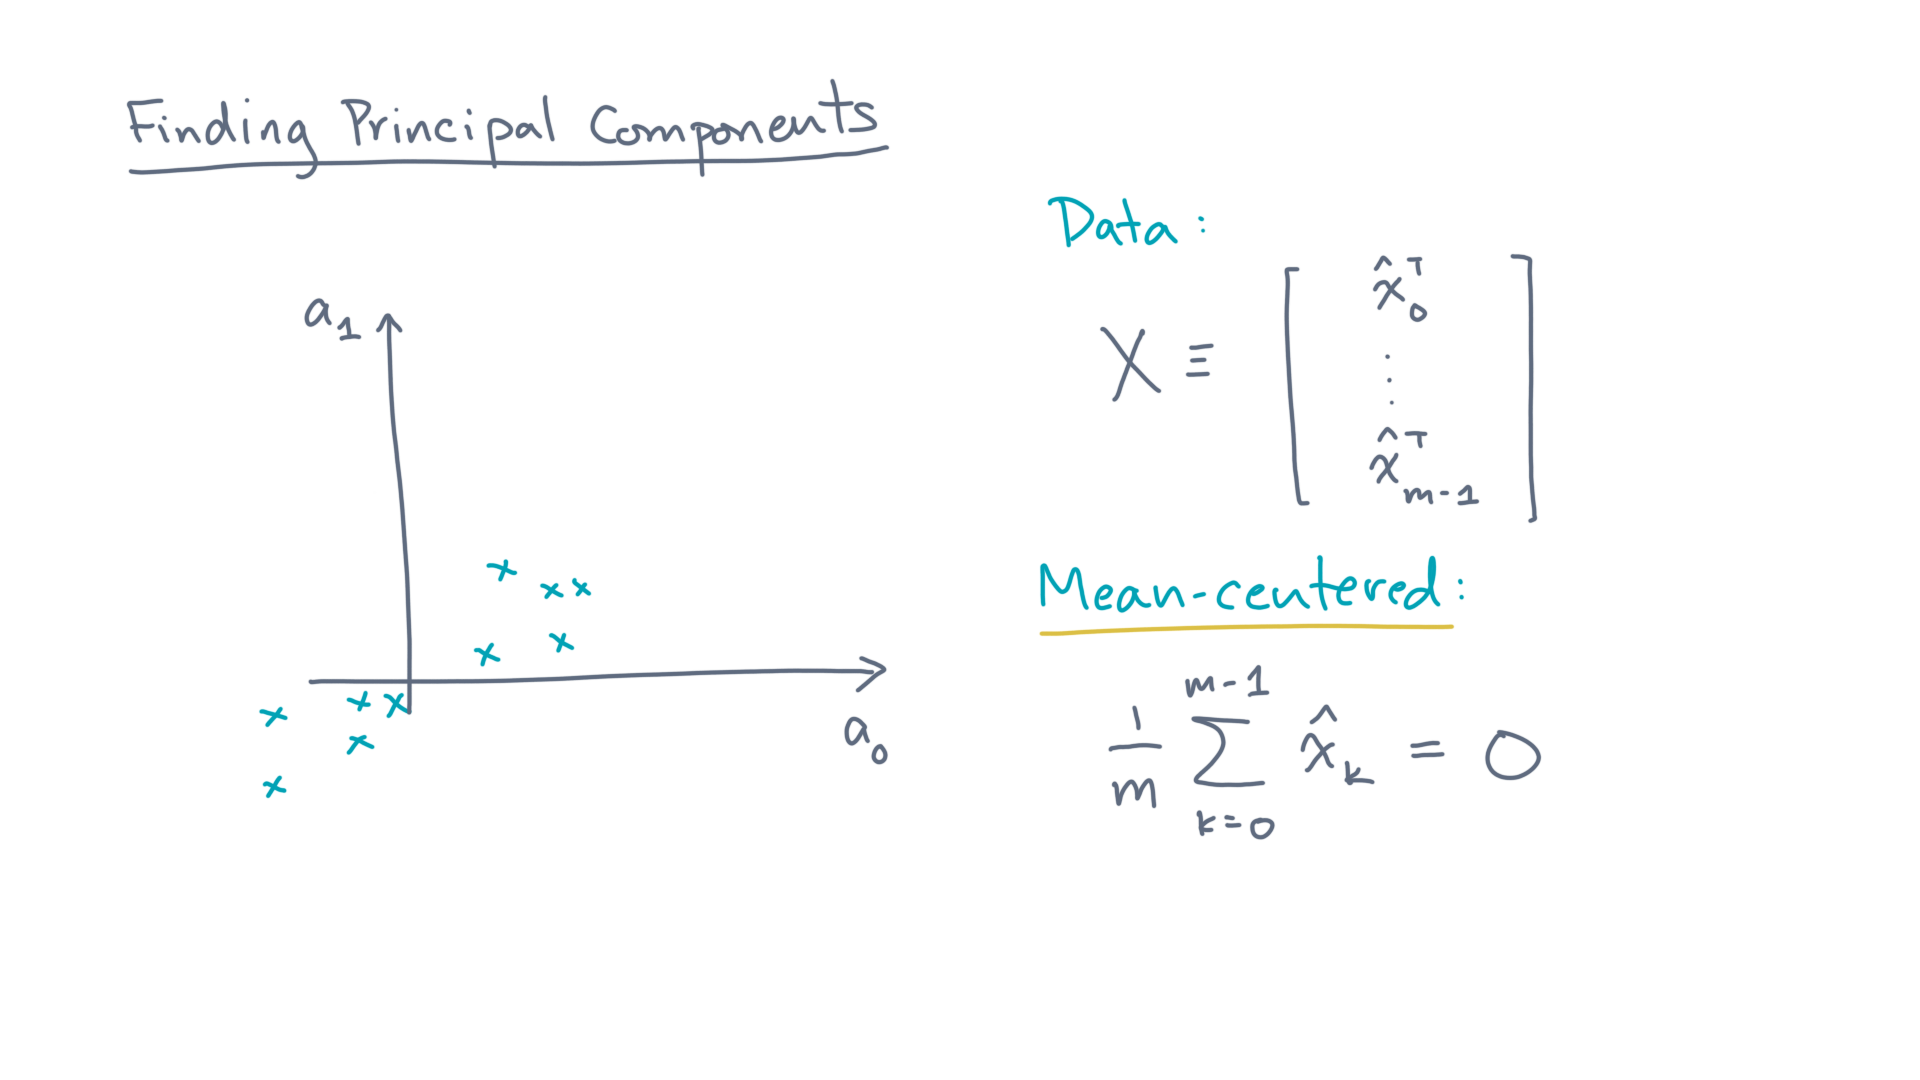 Finding Principal Components
a₁
a₀
Data:
X ≡ [ x̂₀ᵀ
⋮
x̂ᵀₘ₋₁ ]
Mean-centered:
m-1
1/m ∑ x̂ₖ = 0
k=0